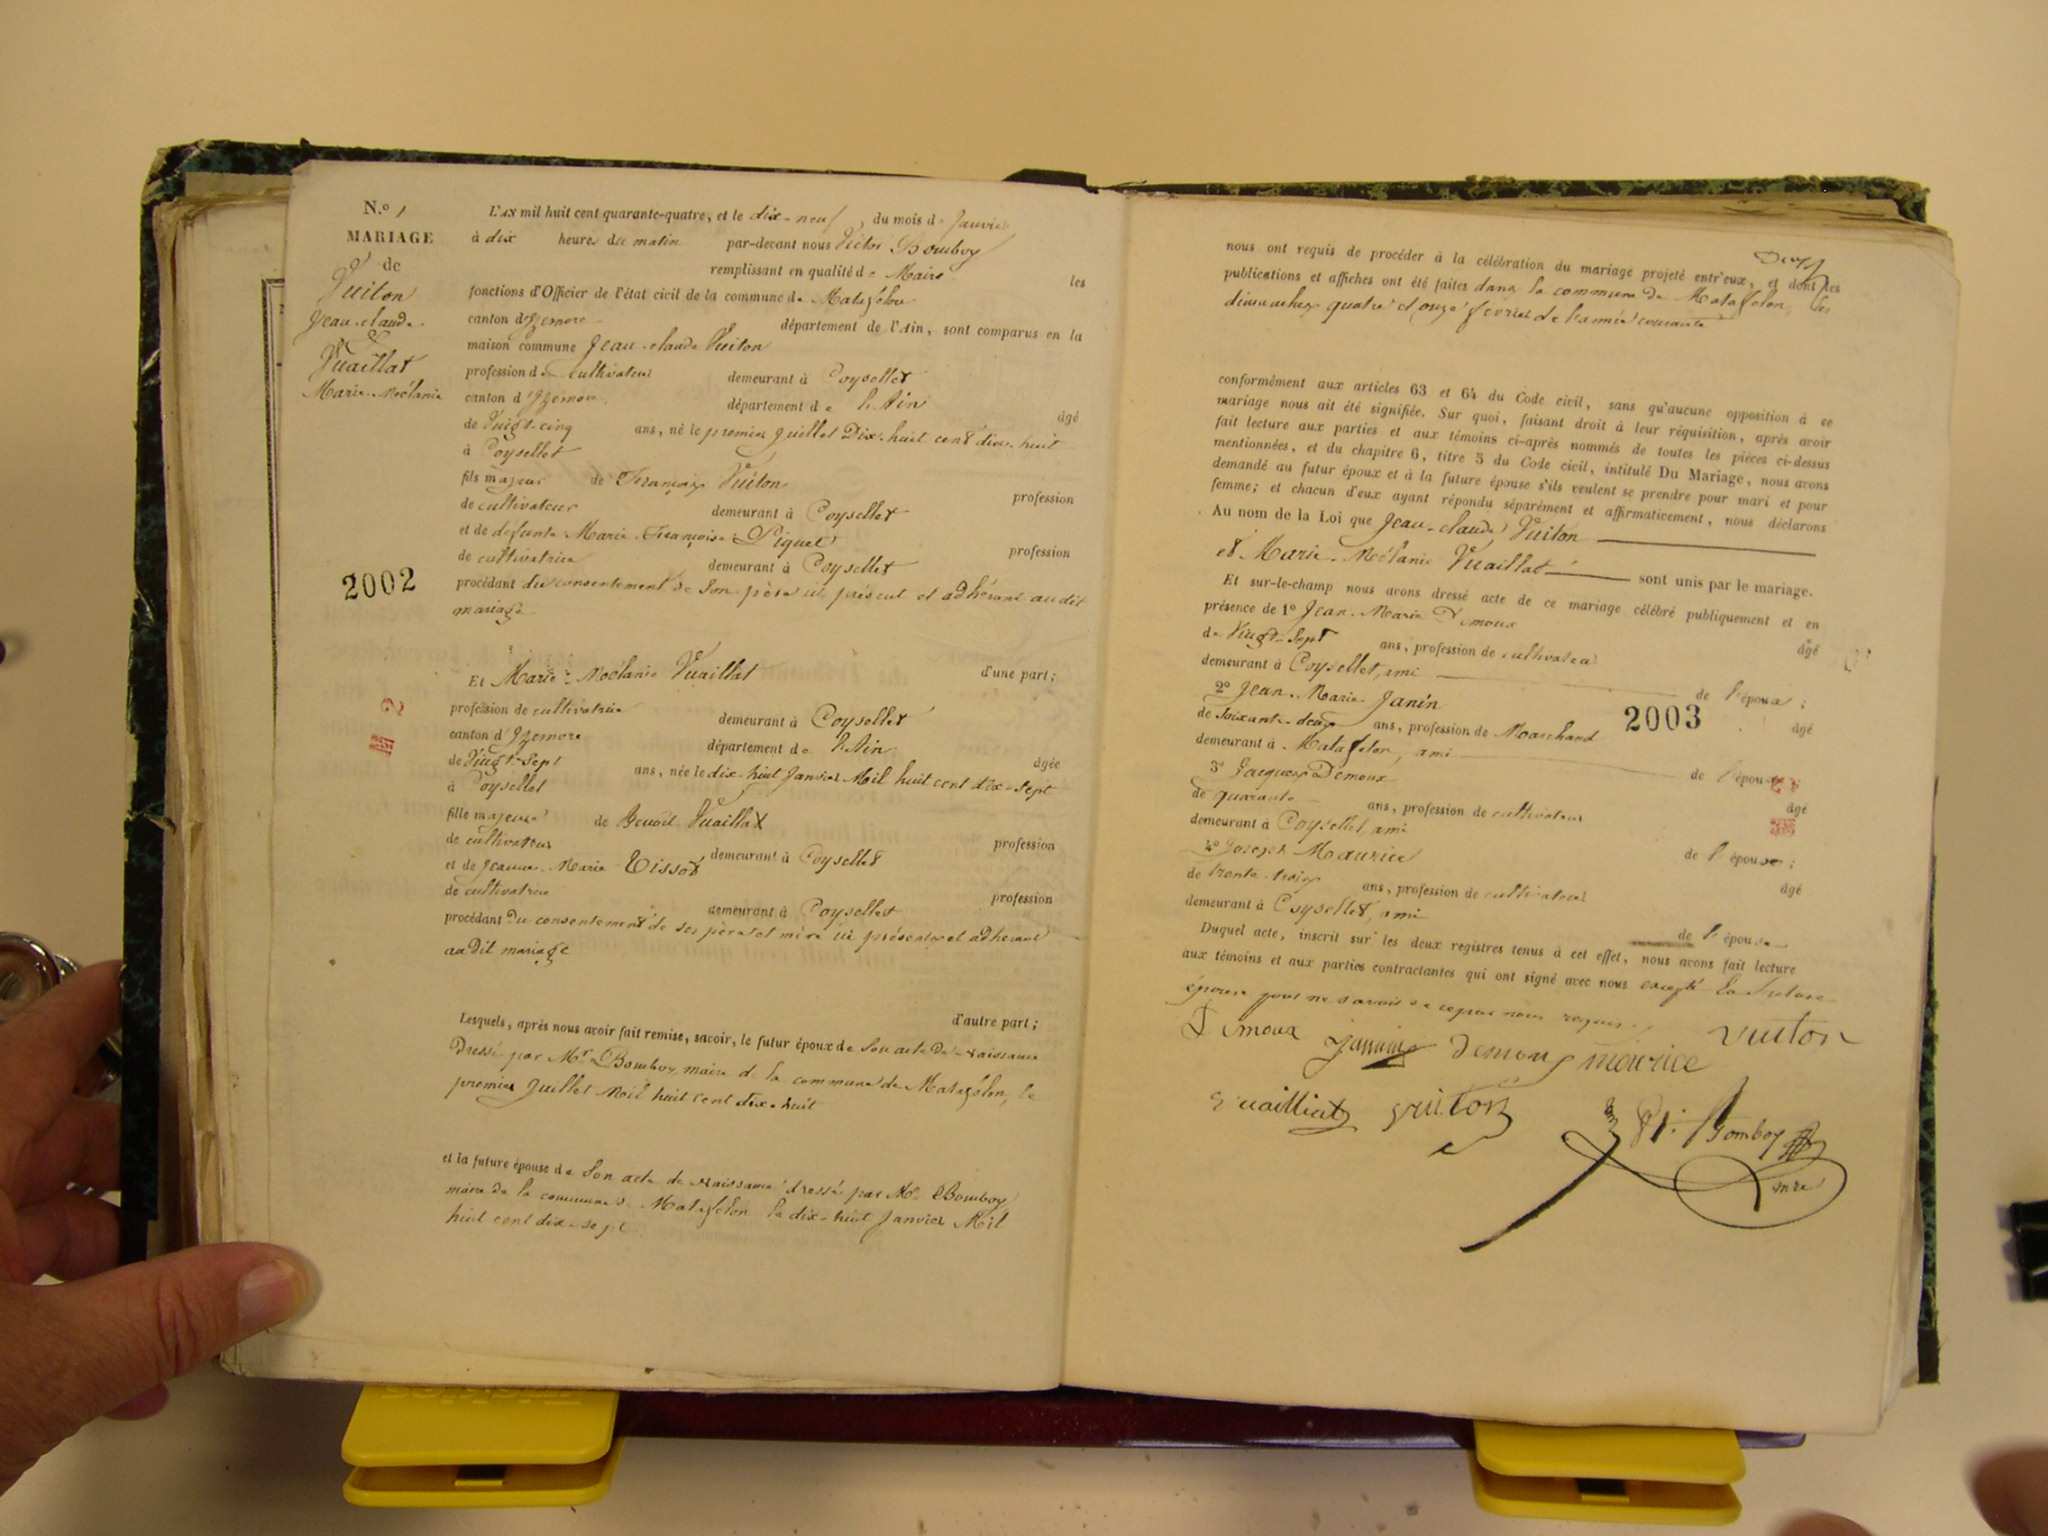 N.º 1
MARIAGE
de
Vuiton
Jean-claude
&
Vuaillat
Marie-Mélanie
2002
L'AN mil huit cent quarante-quatre, et le dix-neuf, du mois de Janvier
à dix heures du matin par-devant nous Victor Bomboy
remplissant en qualité de Maire les
fonctions d'Officier de l'état civil de la commune de Matafélon
canton d'Izernore département de l'Ain, sont comparus en la
maison commune Jean-claude Vuiton
profession de cultivateur demeurant à Coysellet
canton d'Izernore département de l'Ain âgé
de Vingt-cinq ans, né le premier Juillet Dix-huit cent dix-huit
à Coysellet
fils majeur de François Vuiton profession
de cultivateur demeurant à Coysellet
et de defunte Marie-Françoise Piquet profession
de cultivatrice demeurant à Coysellet
procédant du consentement de Son père ici présent et adhérant audit
mariage
d'une part;
Et Marie-Mélanie Vuaillat
profession de cultivatrice demeurant à Coysellet
canton d'Izernore département de l'Ain âgée
de Vingt-Sept ans, née le dix-huit Janvier Mil huit cent dix-sept
à Coysellet
fille majeure de Benoit Vuaillat profession
de cultivateur demeurant à Coysellet
et de Jeanne-Marie Tissot profession
de cultivatrice demeurant à Coysellet
procédant du consentement de ses père et mère ici présents et adhérant
audit mariage
d'autre part;
Lesquels, après nous avoir fait remise, savoir, le futur époux de Son acte de Naissance
Dressé par Mr Bomboy, maire de la commune de Matafélon, le
premier Juillet Mil huit cent dix-huit
et la future épouse de Son acte de Naissance dressé par Mr Bomboy
maire de la commune de Matafélon le dix-huit Janvier Mil
huit cent dix-sept
nous ont requis de procéder à la célébration du mariage projeté entr'eux, et dont les Deux
publications et affiches ont été faites dans la commune de Matafélon, les
dimanches quatre et onze fevrier de l'année courante
conformément aux articles 63 et 64 du Code civil, sans qu'aucune opposition à ce
mariage nous ait été signifiée. Sur quoi, faisant droit à leur réquisition, après avoir
fait lecture aux parties et aux témoins ci-après nommés de toutes les pièces ci-dessus
mentionnées, et du chapitre 6, titre 5 du Code civil, intitulé Du Mariage, nous avons
demandé au futur époux et à la future épouse s'ils veulent se prendre pour mari et pour
femme; et chacun d'eux ayant répondu séparément et affirmativement, nous déclarons
Au nom de la Loi que Jean-claude Vuiton
et Marie-Mélanie Vuaillat sont unis par le mariage.
Et sur-le-champ nous avons dressé acte de ce mariage célébré publiquement et en
présence de 1º Jean-Marie Demoux âgé
de Vingt-Sept ans, profession de cultivateur
demeurant à Coysellet, ami de l'époux;
2º Jean-Marie Janin âgé
de Soixante-deux ans, profession de Marchand
2003
demeurant à Matafélon, ami de l'époux;
3º Jacques Demoux âgé
de quarante ans, profession de cultivateur
demeurant à Coysellet, ami de l'épouse;
4º Joseph Maurice âgé
de trente-trois ans, profession de cultivateur
demeurant à Coysellet, ami de l'épouse
Duquel acte, inscrit sur les deux registres tenus à cet effet, nous avons fait lecture
aux témoins et aux parties contractantes qui ont signé avec nous excepté la future
épouse pour ne savoir de ce par nous requis.
Demoux Janin Demoux maurice Vuiton
Vuailliat Vuiton Bomboy
mre